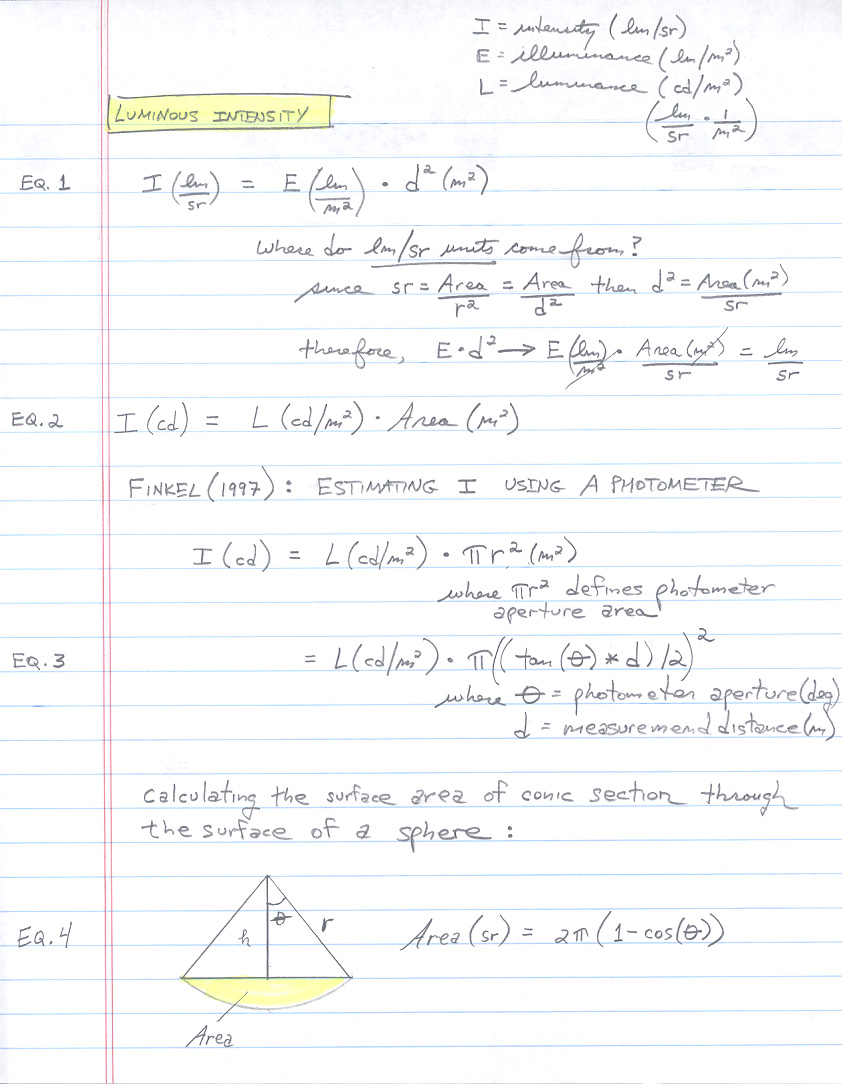 I = intensity (lm/sr)
E = illuminance (lm/m²)
L = luminance (cd/m²)
(lm/sr · 1/m²)
LUMINOUS INTENSITY
EQ. 1 I (lm/sr) = E (lm/m²) · d² (m²)
Where do lm/sr units come from?
since sr = Area/r² = Area/d² then d² = Area(m²)/sr
therefore, E·d² → E(lm)/m² · Area(m²)/sr = lm/sr
EQ. 2 I (cd) = L (cd/m²) · Area (m²)
FINKEL (1997): ESTIMATING I USING A PHOTOMETER
I (cd) = L (cd/m²) · πr² (m²)
where πr² defines photometer
aperture area
EQ. 3 = L(cd/m²) · π((tan(θ) * d)/2)²
where θ = photometer aperture (deg)
d = measuremend distance (m)
Calculating the surface area of conic section through
the surface of a sphere:
EQ. 4 h θ r Area (sr) = 2π(1-cos(θ))
Area